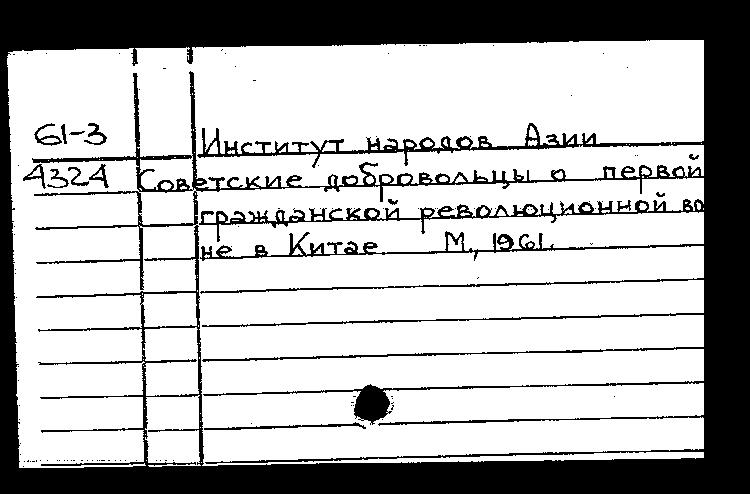 61-3 Институт народов Азии
4324 Советские добровольцы о первой
гражданской революционной во
не в Китае М., 1961.